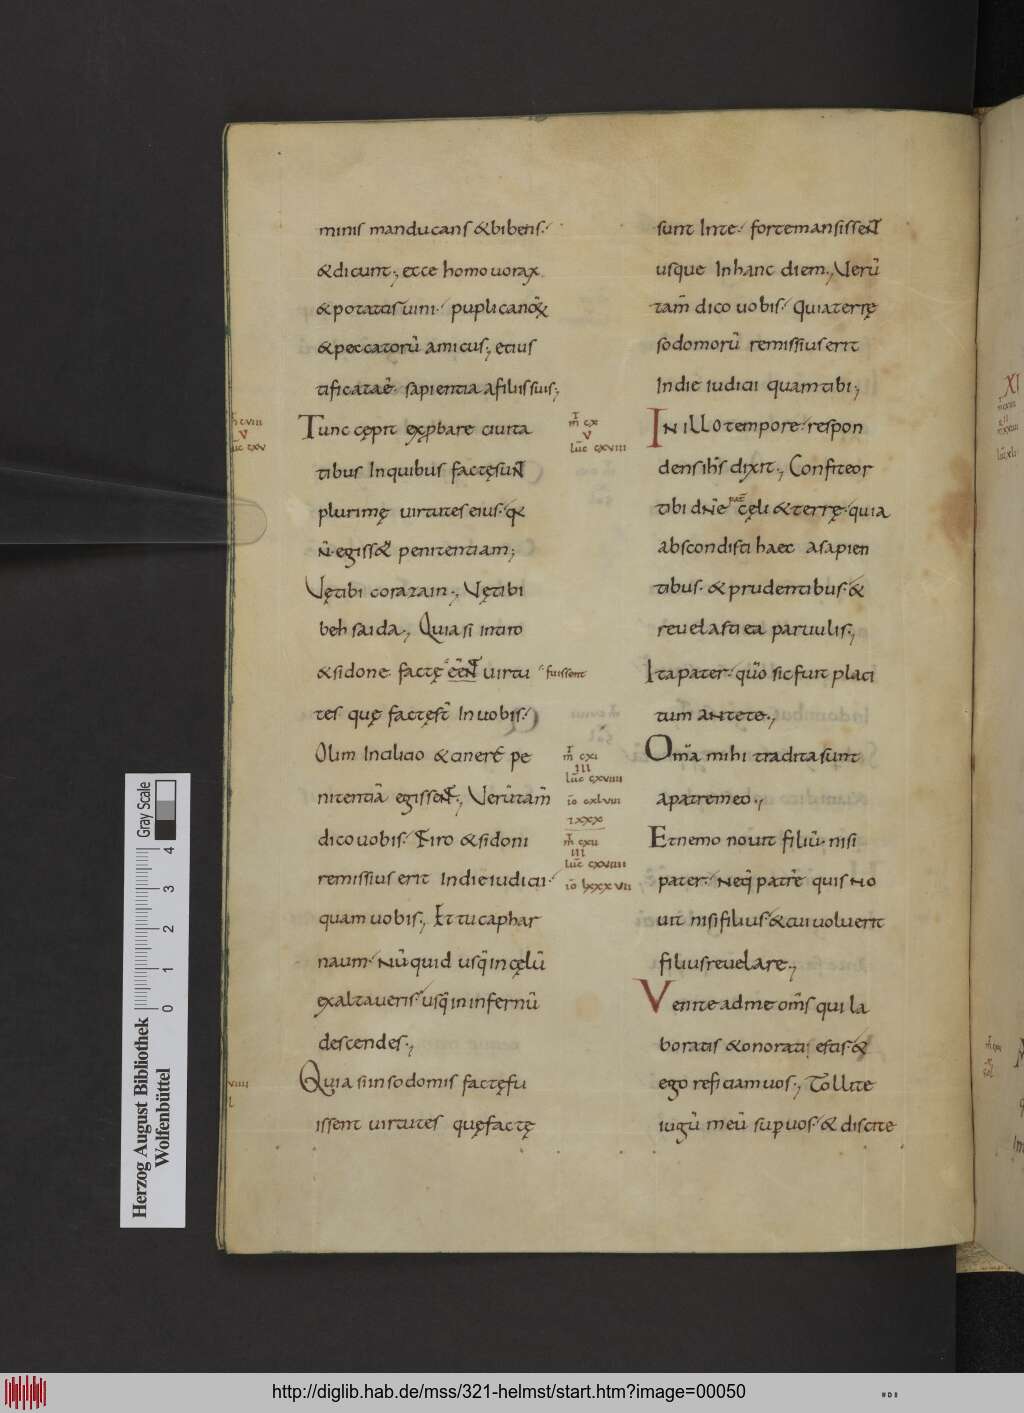 minis manducans &bibens·
&dicunt·, ecce homo uorax
&potator uini· puplicanoꝝ
&peccatorū amicus·, etius
tificata ē sapientia afiliis suis·,
Tunc cępit exprobare ciuita
tibus Inquibus factęsunt
plurimę uirtutes eius·
n̄ egiss& penitentiam·,
Vętibi corazain·, Vętibi
behsaida·, Quia si intiro
&sidone factę eēnt uirtu
fuissent
tes quę factęst̄ Inuobis·
Olim Incilicio &cinerē pe
nitentiā egissent·, Verūtam̄
dico uobis· Tiro &sidoni
remissius erit Indieiudicii·
quam uobis·, Et tu caphar
naum· Nūquid usq̄ incęlū
exaltaueris· usq̄ ininfernū
descendes·,
Quia siinsodomis factęfu
issent uirtutes quęfactę
m̄ cviii
v
luc̄ cxv
viiii
l
m̄ cx
v
luc̄ cxviii
m̄ cxi
iii
luc̄ cxviiii
iō cxlviii
m̄ cxii
iii
luc̄ cxviiii
iō lxxxvii
sunt Inte· fortemansissent
usque Inhanc diem·, Verū
tam̄ dico uobis· Quiaterrę
sodomorū remissiuserit
Indie iudicii quam tibi·,
IN illo tempore· respon
densihs̄ dixit·, Confiteor
tibi dn̄e pat̄ cęli &terrę· quia
abscondisti haec asapien
tibus· &prudentibus· &
reuelasti ea paruulis·,
Ita pater· quō sicfuit placi
tum ante te·,
Om̄a mihi tradita sunt
apatremeo·,
Etnemo nouit filiū· nisi
pater· Neq̄ patrē quis No
uit nisifilius· &cui uoluerit
filiusreuelare·,
Venite adme om̄s qui la
boratis &onorati estis· &
ego reficiam uos·, Tollite
iugū meū supuos· &discite
Herzog August Bibliothek
Wolfenbüttel
0 1 2 3 4
Gray Scale
http://diglib.hab.de/mss/321-helmst/start.htm?image=00050